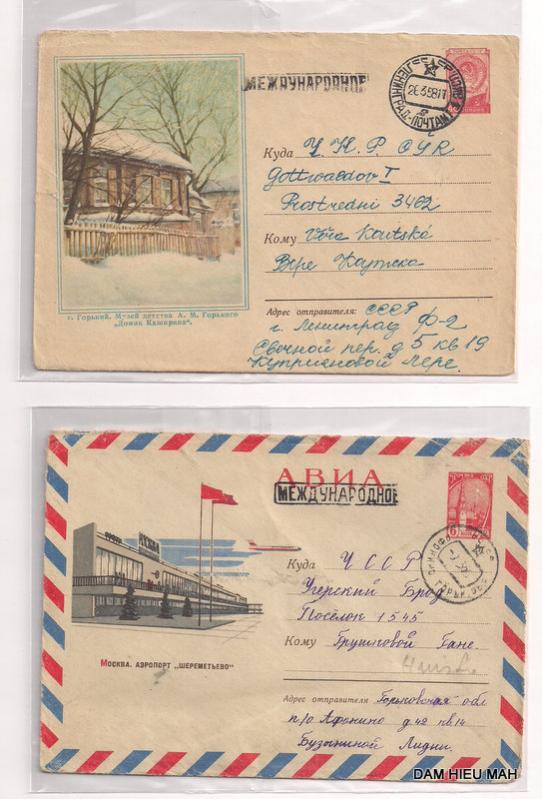 МЕЖДУНАРОДНОЕ
ЛЕНИНГРАД-ПОЧТАМТ
26.3.58.17
Куда Ч.Н.Р. ČSR
Gottwaldov I
Prostredni 3462
Кому Věra Koutská
Вере
Адрес отправителя: СССР
г. Ленинград Ф-2
Свечной пер. д 5 кв 19
Куприяновой Лере.
г. Горький. Музей детства А. М. Горького
„Домик Каширина“.
АВИА
МЕЖДУНАРОДНОЕ
МОСКВА
Куда ЧССР
Угерский Брод
Посёлок 1545
Кому Грушковой Гане.
Москва. АЭРОПОРТ „ШЕРЕМЕТЬЕВО“
Адрес отправителя Горьковская обл
п/о Афонино д 42 кв 14
Бузыниной Лидии.
DAM HIEU MAH